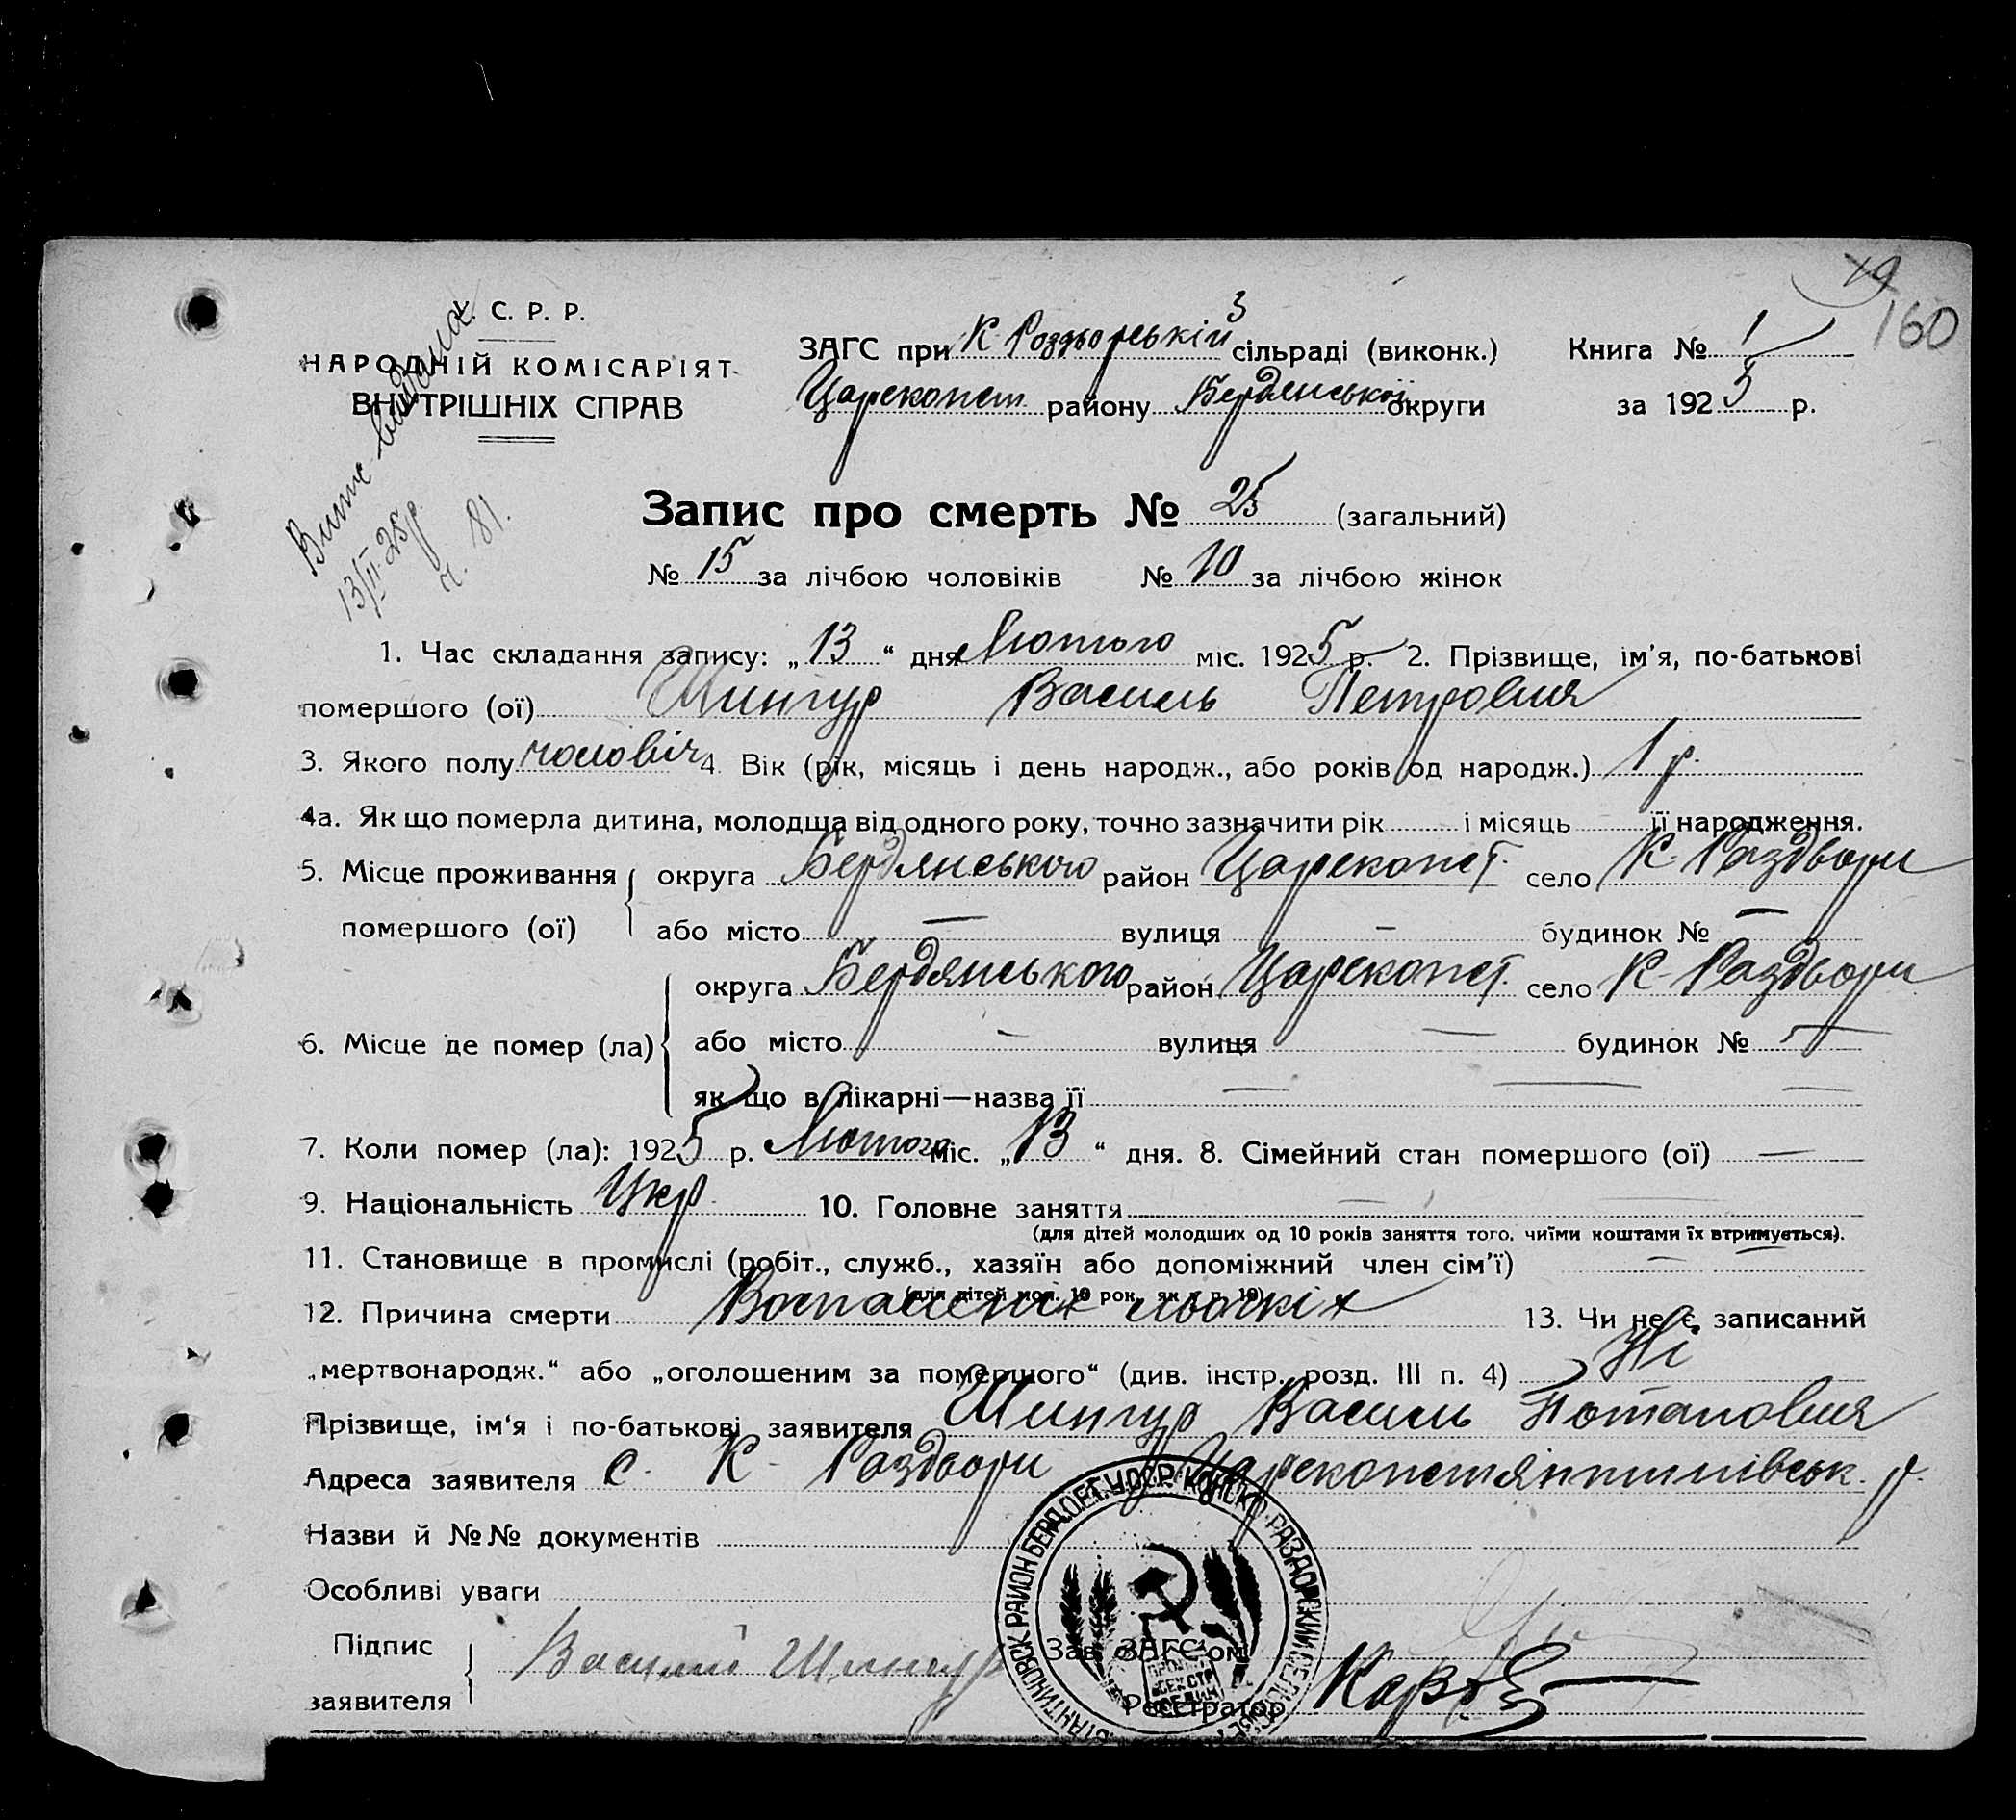 19
160
С. Р. Р.
НАРОДНІЙ КОМІСАРІЯТ
ВНУТРІШНІХ СПРАВ
Витяг видана
13/II-25р.
ч. 81.
ЗАГС при К-Роздорській сільраді (виконк.) Книга № 1
Цареконст району Бердянської округи за 1925 р.
Запис про смерть № 25 (загальний)
№ 15 за лічбою чоловіків № 10 за лічбою жінок
1. Час складання запису: „13“ дня Лютого міс. 1925 р. 2. Прізвище, ім'я, по-батькові
помершого (ої) Шингур Василь Петровия
3. Якого полу чоловіч 4. Вік (рік, місяць і день народж., або років од народж.) 1 р.
4а. Як що померла дитина, молодща від одного року, точно зазначити рік і місяць її народження.
5. Місце проживання округа Бердянського район Цареконст. село К-Раздвори
помершого (ої) або місто — вулиця — будинок № —
округа Бердянського район Цареконст. село К-Раздвори
6. Місце де помер (ла) або місто — вулиця — будинок № —
як що в лікарні—назва її — — —
7. Коли помер (ла): 1925 р. Лютого міс. „13“ дня. 8. Сімейний стан помершого (ої) —
9. Національність Укр. 10. Головне заняття — —
(для дітей молодших од 10 років заняття того, чиїми коштами їх втримується).
11. Становище в промислі (робіт., служб., хазяїн або допоміжний член сім'ї) — —
(для дітей мол. 10 рок, як в п. 10)
12. Причина смерти 13. Чи не є записаний
„мертвонародж.“ або „оголошеним за помершого“ (див. інстр. розд. III п. 4) Ні
Прізвище, ім'я і по-батькові заявителя Шингур Василь Потаповия
Адреса заявителя с. К-Раздвори Цареконстянтинівськ. р.
Назви й №№ документів
Особливі уваги
Підпис заявителя Василий Шингур Зав. ЗАГС'ом
Реєстратор